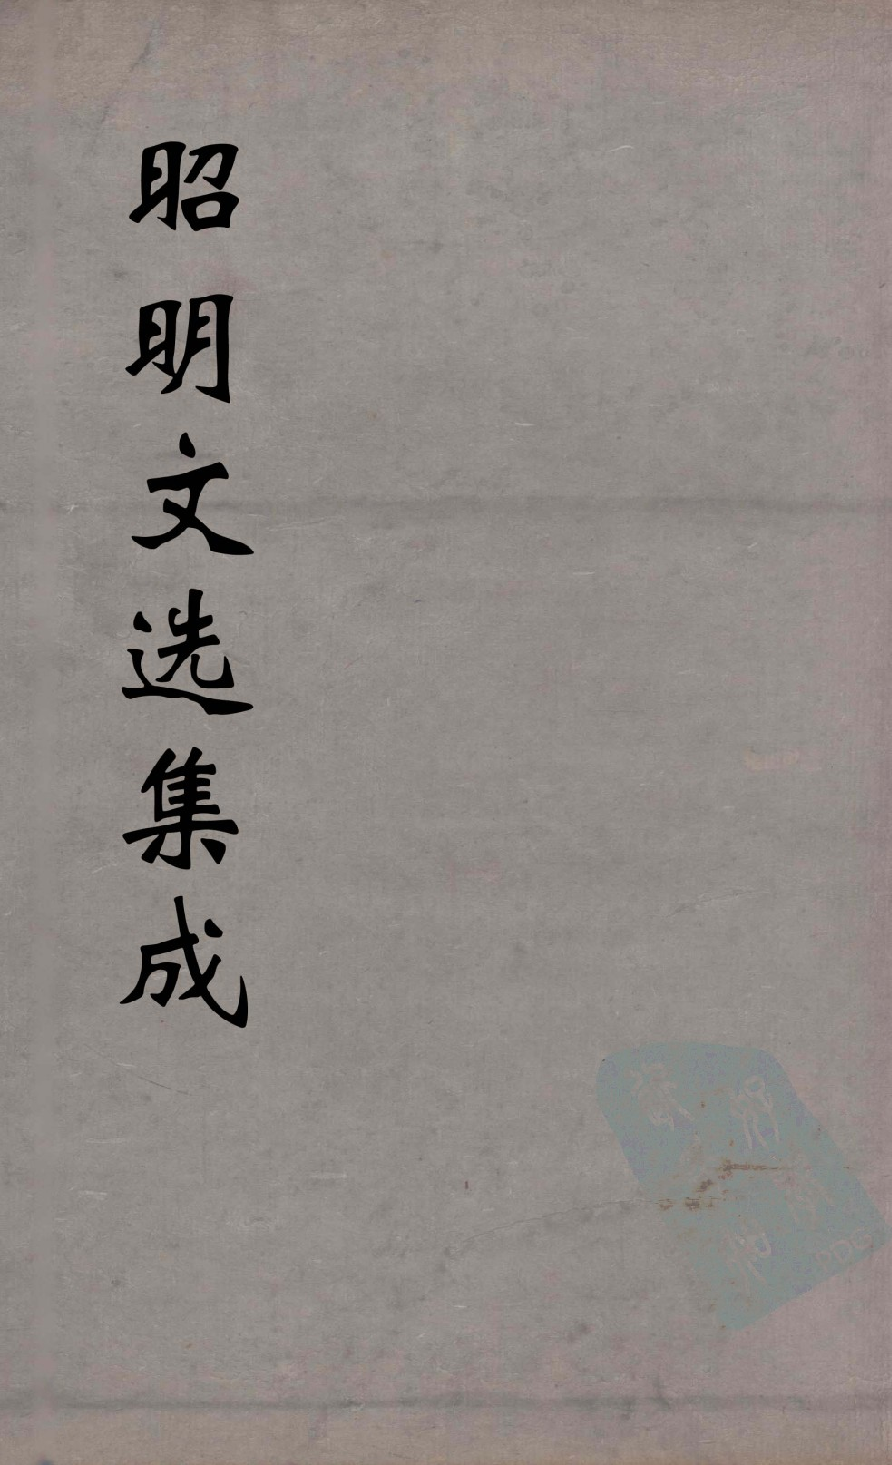 昭明文选集成